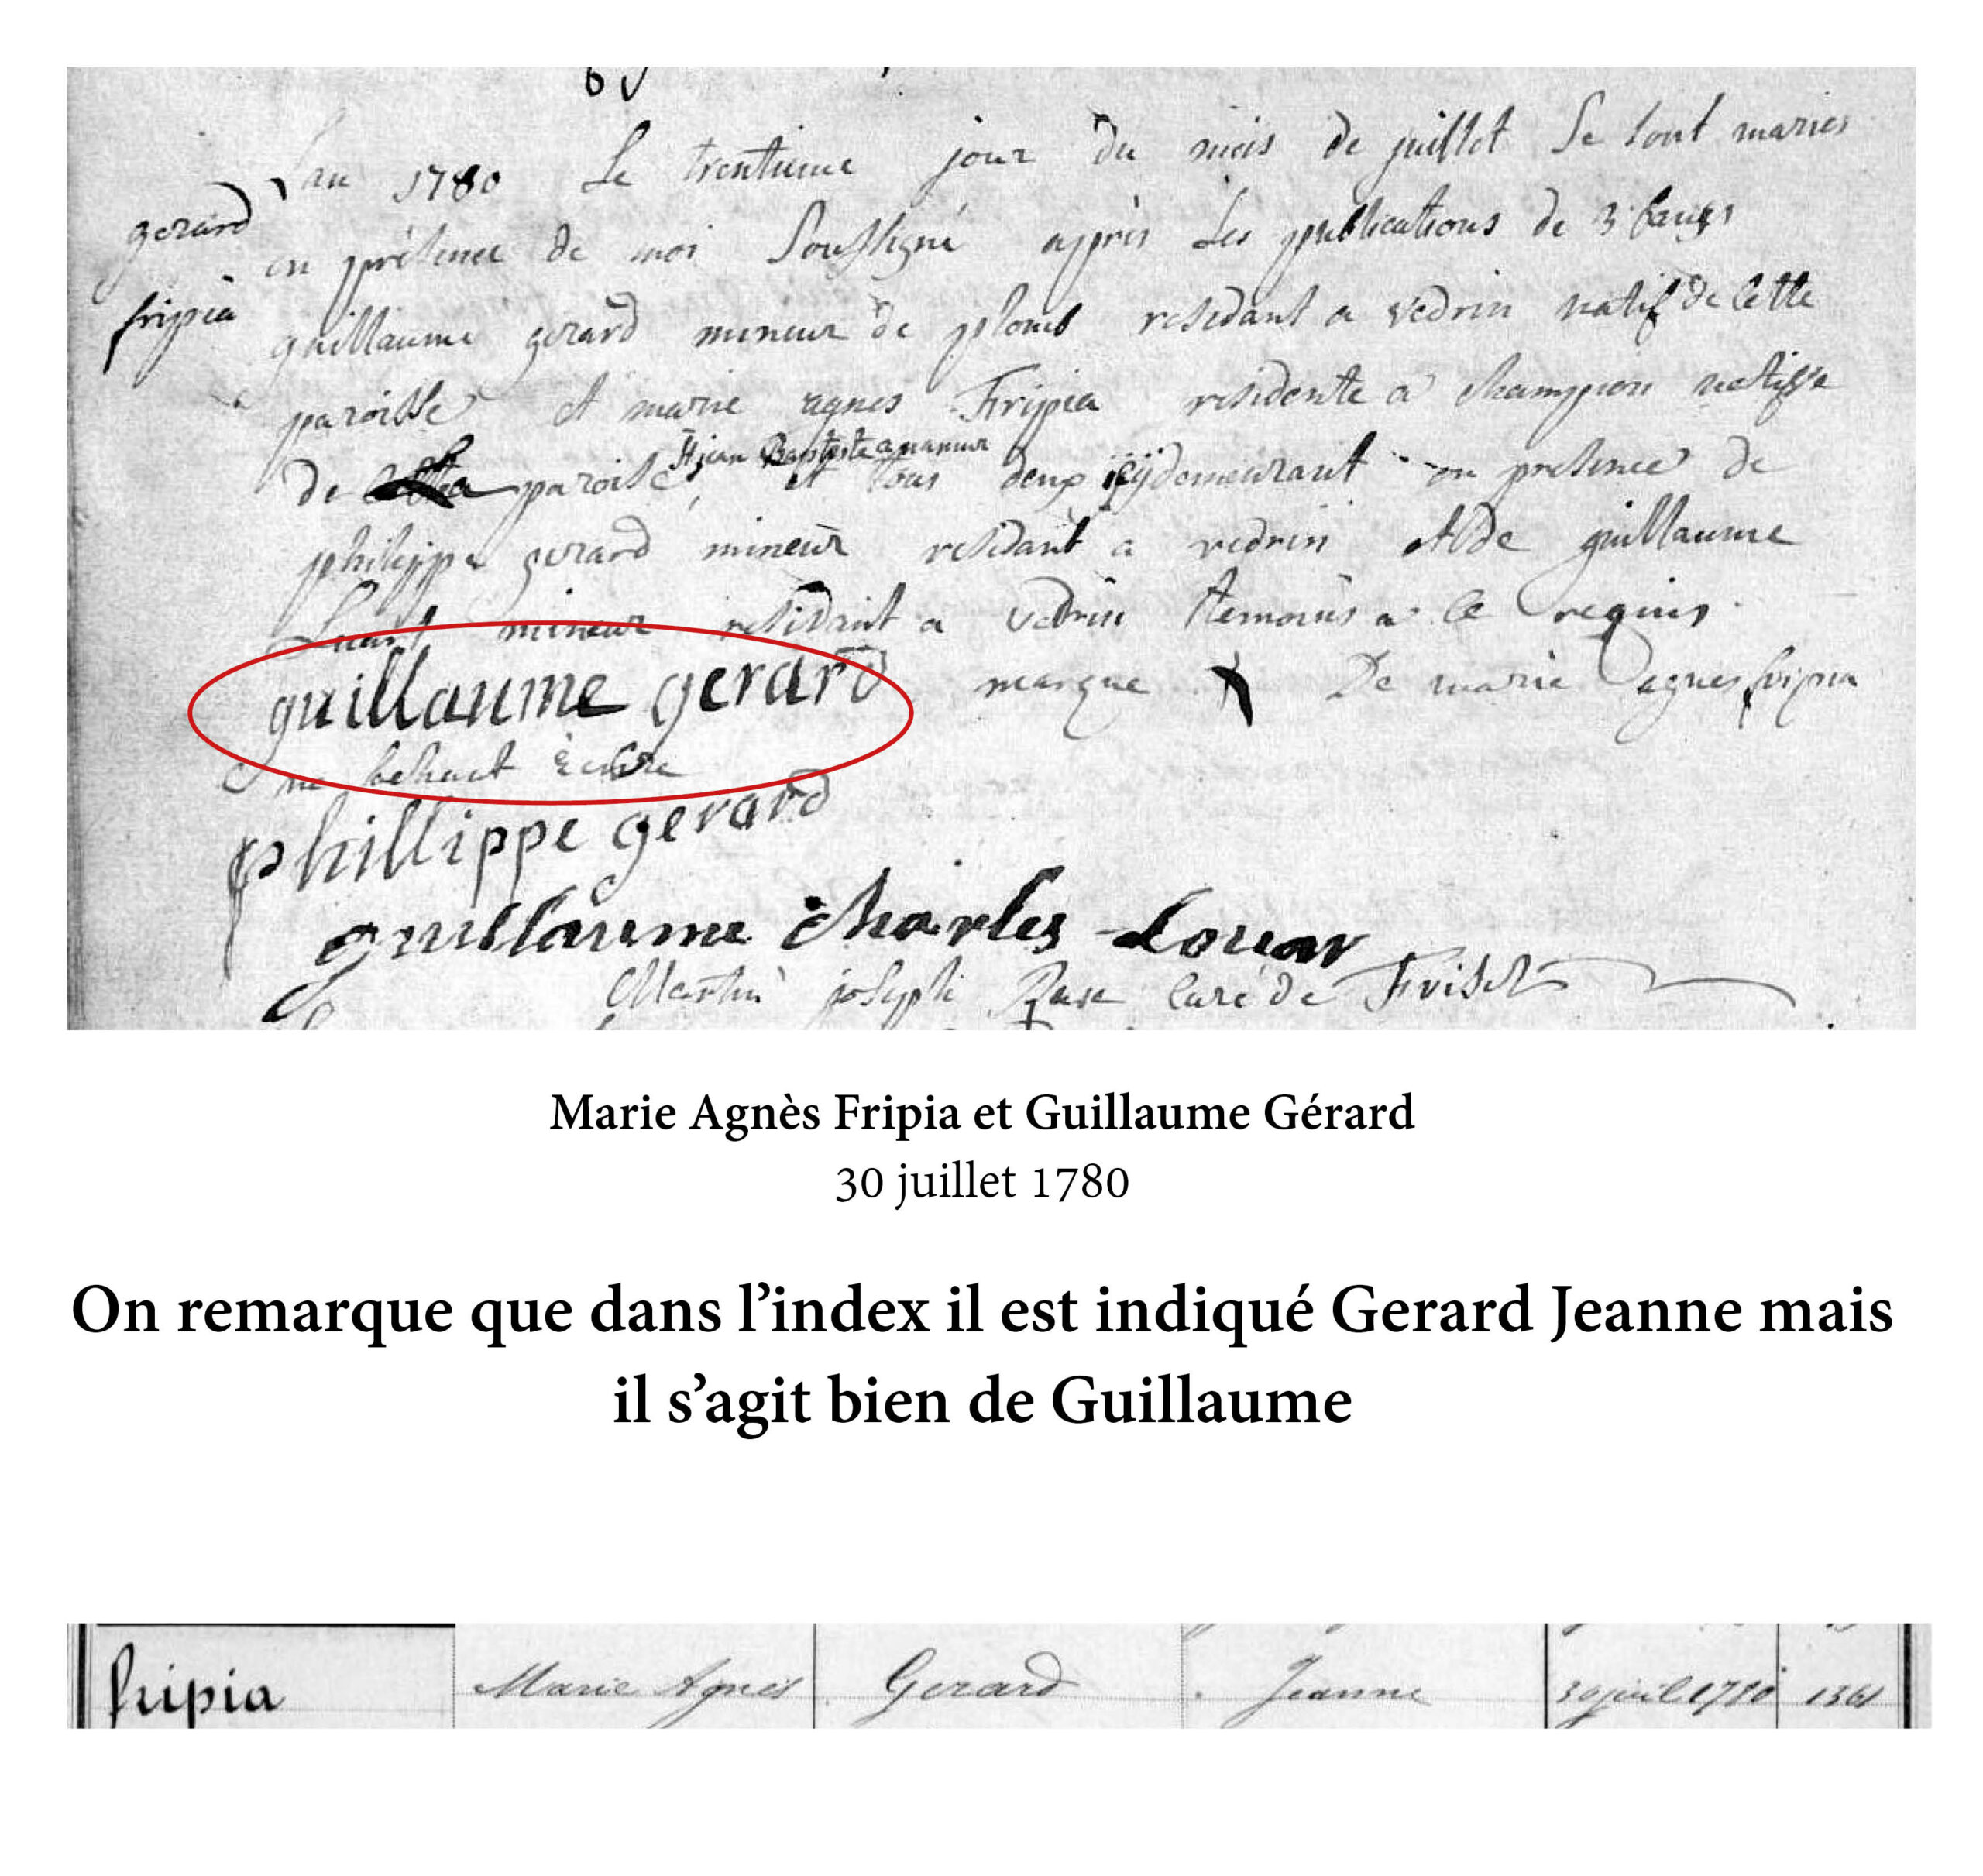 L'an 1780 Le trentieme jour du mois de juillet Se sont mariés
gerard
en présence de moi Soussigné après Les publications de 3 bans
fripia
guillaume gerard mineur de plomb residant a vedrin natif de cette
paroisse et marie agnes Fripia residente a champion natisse
de paroisse, et tous deux icy demeurant en presence de
St jean Baptiste a namur
philippe gerard mineur residant a vedrin et de guillaume
mineur residant a vedrin temoins a ce requis
guillaume gerard marque De marie agnes fripia
ne sachant écrire
phillippe gerard
guillaume charles Louar
Martin joseph curé de
Marie Agnès Fripia et Guillaume Gérard
30 juillet 1780
On remarque que dans l’index il est indiqué Gerard Jeanne mais
il s’agit bien de Guillaume
fripia Marie Agnès Gerard Jeanne 30 juil 1780